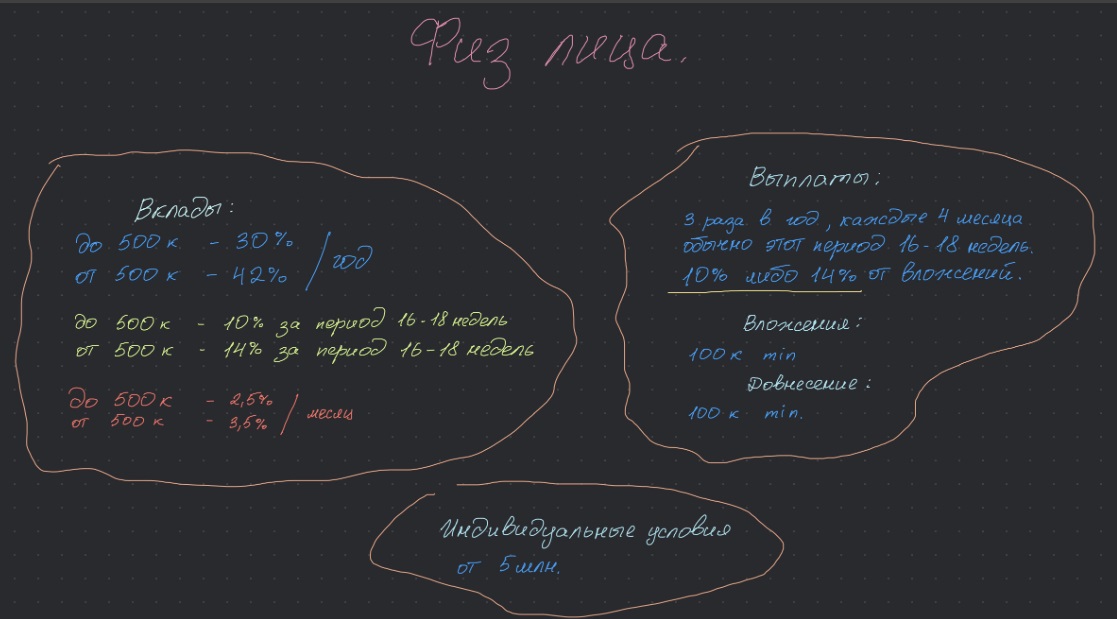 Физ лица.
Вклады:
до 500 к - 30%
от 500 к - 42%
/ год
до 500 к - 10% за период 16-18 недель
от 500 к - 14% за период 16-18 недель
до 500 к - 2,5%
от 500 к - 3,5%
/ месяц
Выплаты:
3 раза в год, каждые 4 месяца
обычно этот период 16-18 недель.
10% либо 14% от вложений.
Вложения:
100 к min
Довнесение:
100 к min.
Индивидуальные условия
от 5 млн.